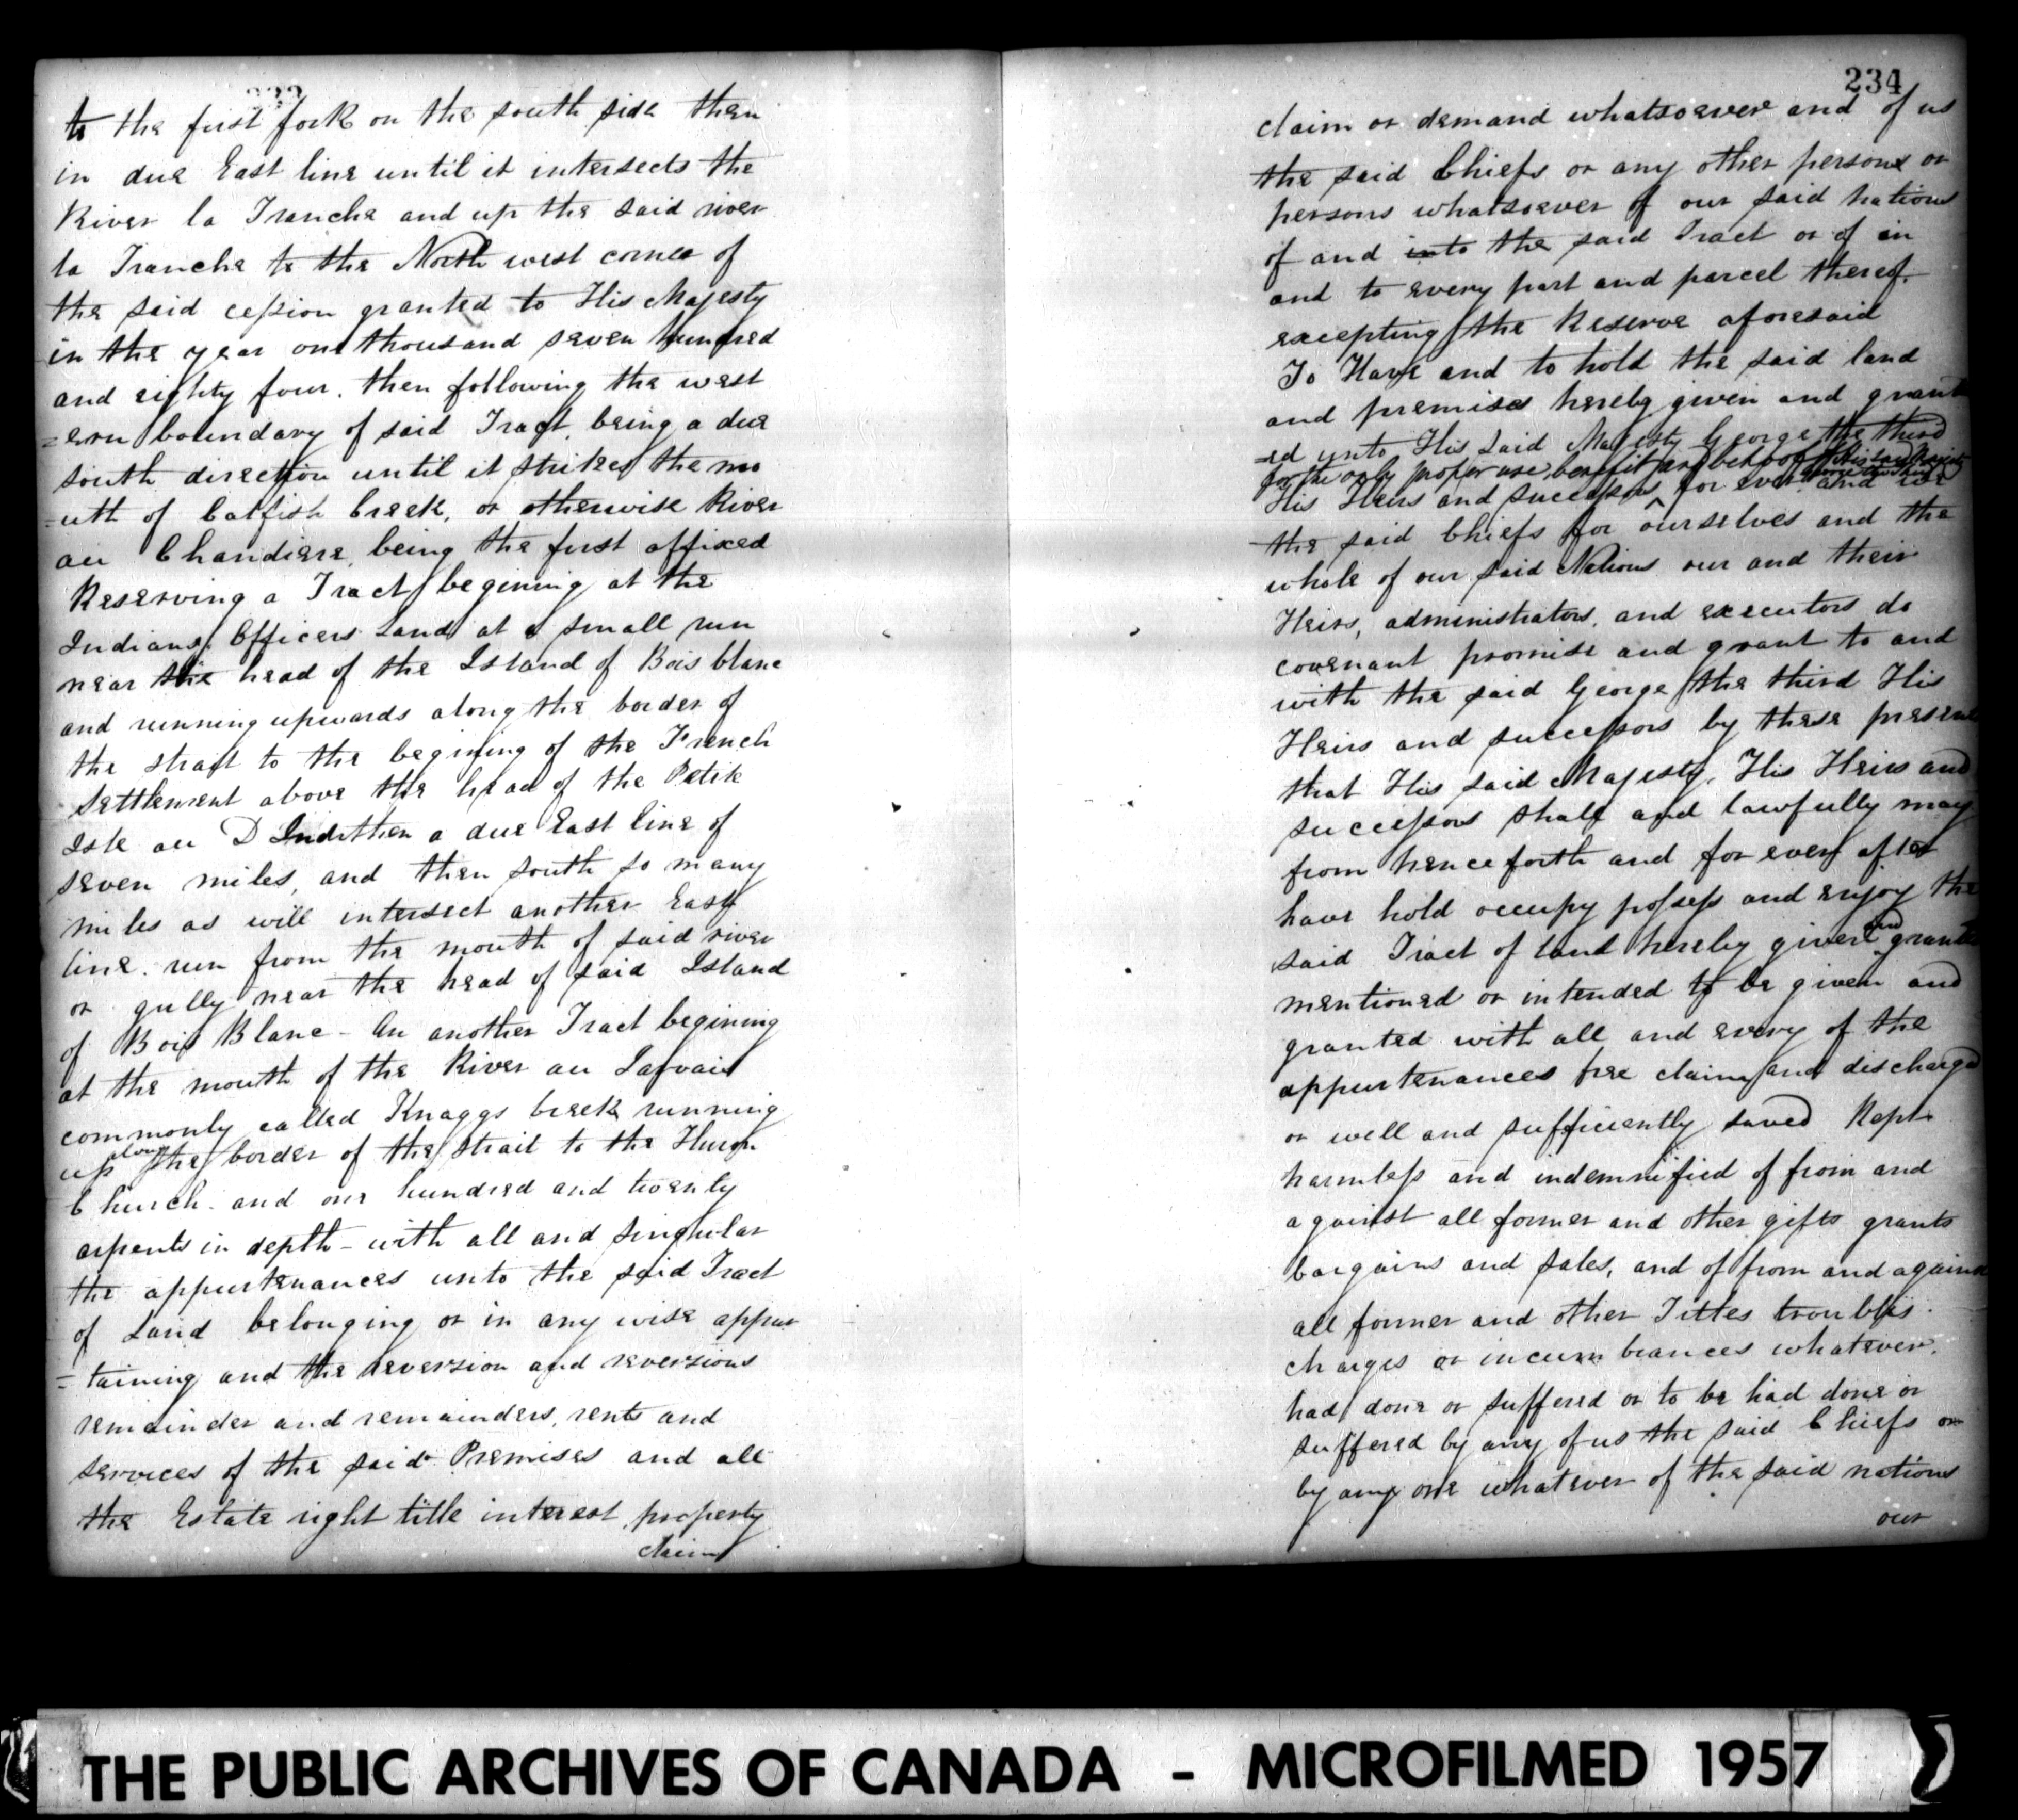 to the first fork on the south side then
in due East line until it intersects the
River la Tranche and up the said river
la Tranche to the North west corner of
the said cession granted to His Majesty
in the year one thousand seven hundred
and eighty four. then following the west
=ern boundary of said Tract, being a due
south direction until it strikes the mo
=uth of Catfish Creek, or otherwise River
au Chandiere, being the first offixed
Reserving a Tract begining at the
Indians Officers Land at a small run
near the head of the Island of Bois blanc
and running upwards along the border of
the strait to the begining of the French
Settlement above the head of the Petite
Isle au D Inde then a due East line of
seven miles, and then south so many
miles as will intersect another East
line. run from the mouth of said river
or gully near the head of said Island
of Bois Blanc - An another Tract begining
at the mouth of the River au Jarvais
commonly called Knaggs Creek running
up along the border of the strait to the Huron
Church. and one hundred and twenty
arpents in depth - with all and singular
the appurtenances unto the said Tract
of Land belonging or in any wise appur
= taining and the reversion and reversions
remainder and remainders, rents and
services of the said Premises and all
the Estate right title interest property
claim
234
claim or demand whatsoever and of us
the said Chiefs or any other persone or
persons whatsoever of our said nations
of and into the said Tract or of in
and to every part and parcel thereof.
excepting the Reserve aforesaid
To Have and to hold the said land
and premises hereby given and grant
=ed unto His said Majesty George the third
for the only proper use, benefit and behoof of His said Majesty
His Heirs and successors for ever and we
the said Chiefs for ourselves and the
whole of our said Nations our and their
Heirs, administrators, and executors do
covenant promise and grant to and
with the said George the third His
Heirs and successors by these presents
that His said Majesty, His Heirs and
successors shall and lawfully may
from hence forth and for ever after
have hold occupy possess and enjoy the
said Tract of land hereby given and granted
mentioned or intended to be given and
granted with all and every of the
appurtenances free claim and discharged
or well and sufficiently saved Kept
harmless and indemnified of from and
against all former and other gifts grants
bargains and sales, and of from and against
all former and other Tittles troubles.
charges or incumbrances whatever.
had done or suffered or to be had done or
suffered by any of us the said Chiefs or
by any one whatever of the said nations
our
THE PUBLIC ARCHIVES OF CANADA - MICROFILMED 1957